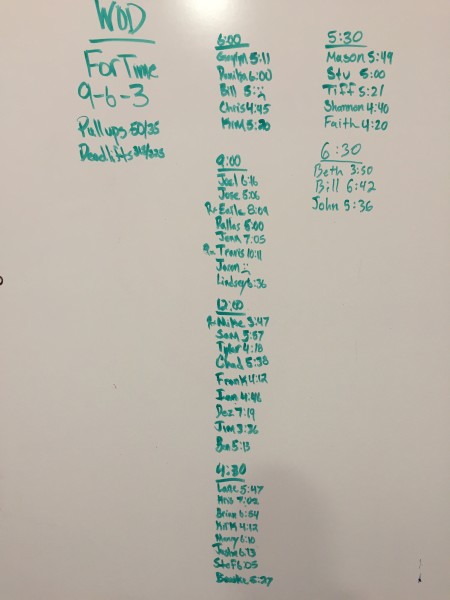 WOD
For Time
9-6-3
Pullups 50/35
Deadlifts /225
6:00
5:11
6:00
Bill 5:
Chris 4:45
Kim 5:20
9:00
Joel 6:16
Jose 8:06
Rx 8:09
Dallas 5:00
Jenn 7:05
Rx Travis 10:11
Jason
Lindsey 6:36
12:00
Rx Mike 3:47
Sam 5:57
Tyler 4:18
Chad 5:38
Frank 4:12
Ian 4:46
Dez 7:19
Jim 3:36
Ben 5:13
4:30
Lane 5:47
Kris 7:02
Brian 6:54
4:12
6:10
Justin 6:13
Stef 6:05
5:27
5:30
Mason 5:49
Stu 5:00
Tiff 5:21
Shannon 4:40
Faith 4:20
6:30
Beth 3:50
Bill 6:42
John 5:36